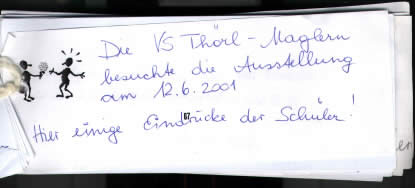 Die VS Thörl - Maglern
besuchte die Ausstellung
am 12.6.2001
Hier einige Eindrücke der Schüler!